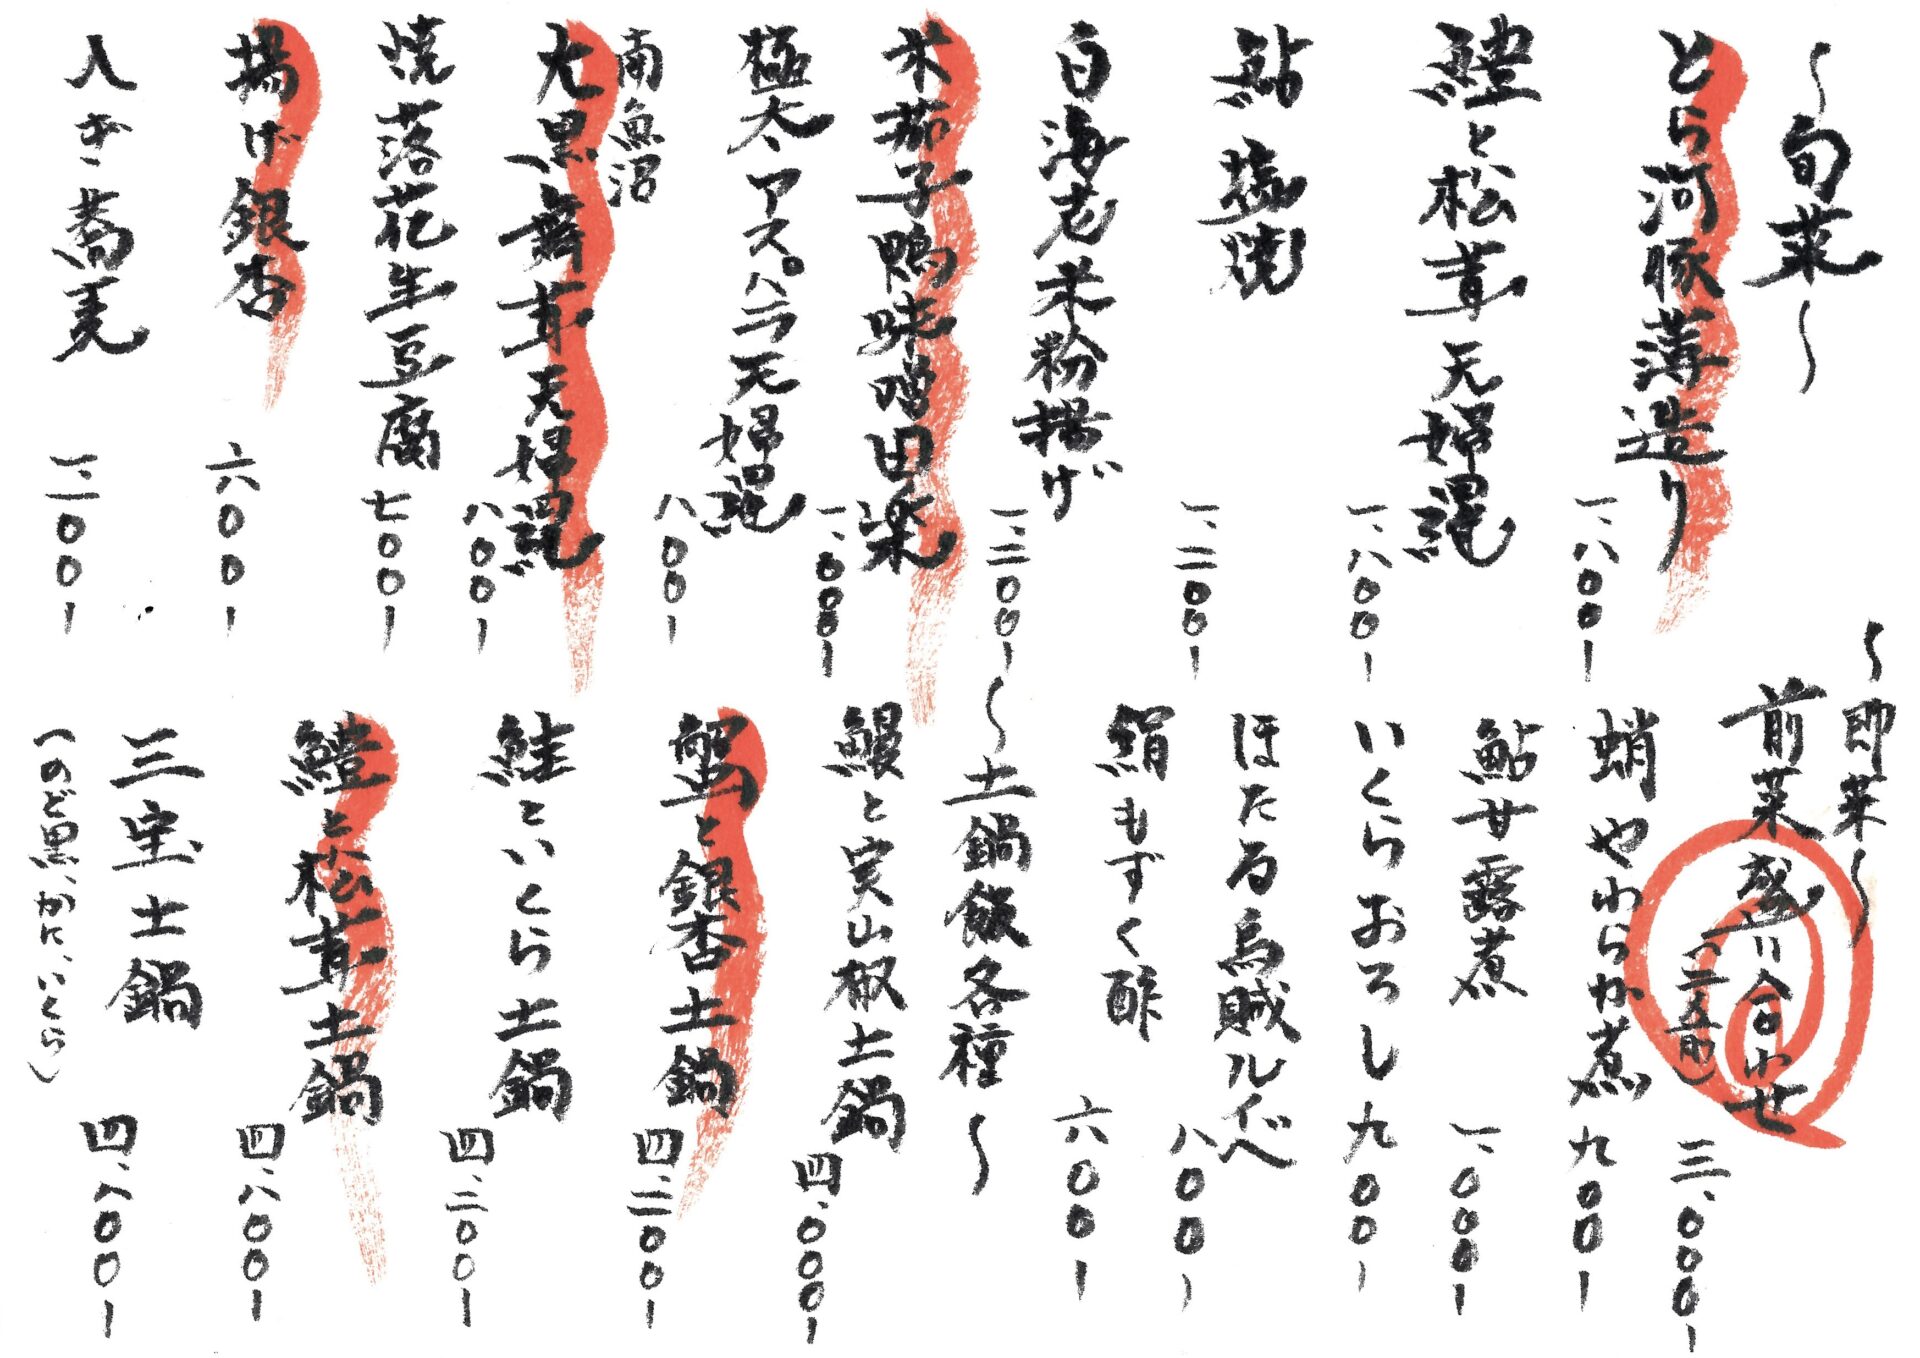 〜旬菜〜
とら河豚薄造り 一、八〇〇-
鱧と松茸天婦羅 一、八〇〇-
鮎塩焼 一、二〇〇-
白海老米粉揚げ 一、二〇〇-
米茄子鴨味噌田楽 一、〇〇〇-
極太アスパラ天婦羅 八〇〇-
南魚沼
大黒舞茸天婦羅 八〇〇-
焼落花生豆腐 七〇〇-
揚げ銀杏 六〇〇-
入き蕎麦 一、二〇〇-
〜即菜〜
前菜盛り合わせ 三、〇〇〇-
蛸やわらか煮 九〇〇-
鮎甘露煮 一、〇〇〇-
いくらおろし 九〇〇-
ほたる烏賊ルイベ 八〇〇-
絹もずく酢 六〇〇-
〜土鍋飯各種〜
鰻と実山椒土鍋 四、〇〇〇-
蟹と銀杏土鍋 四、二〇〇-
鮭といくら土鍋 四、二〇〇-
鱧と松茸土鍋 四、八〇〇-
三宝土鍋 四、八〇〇-
(のど黒、かに、いくら)